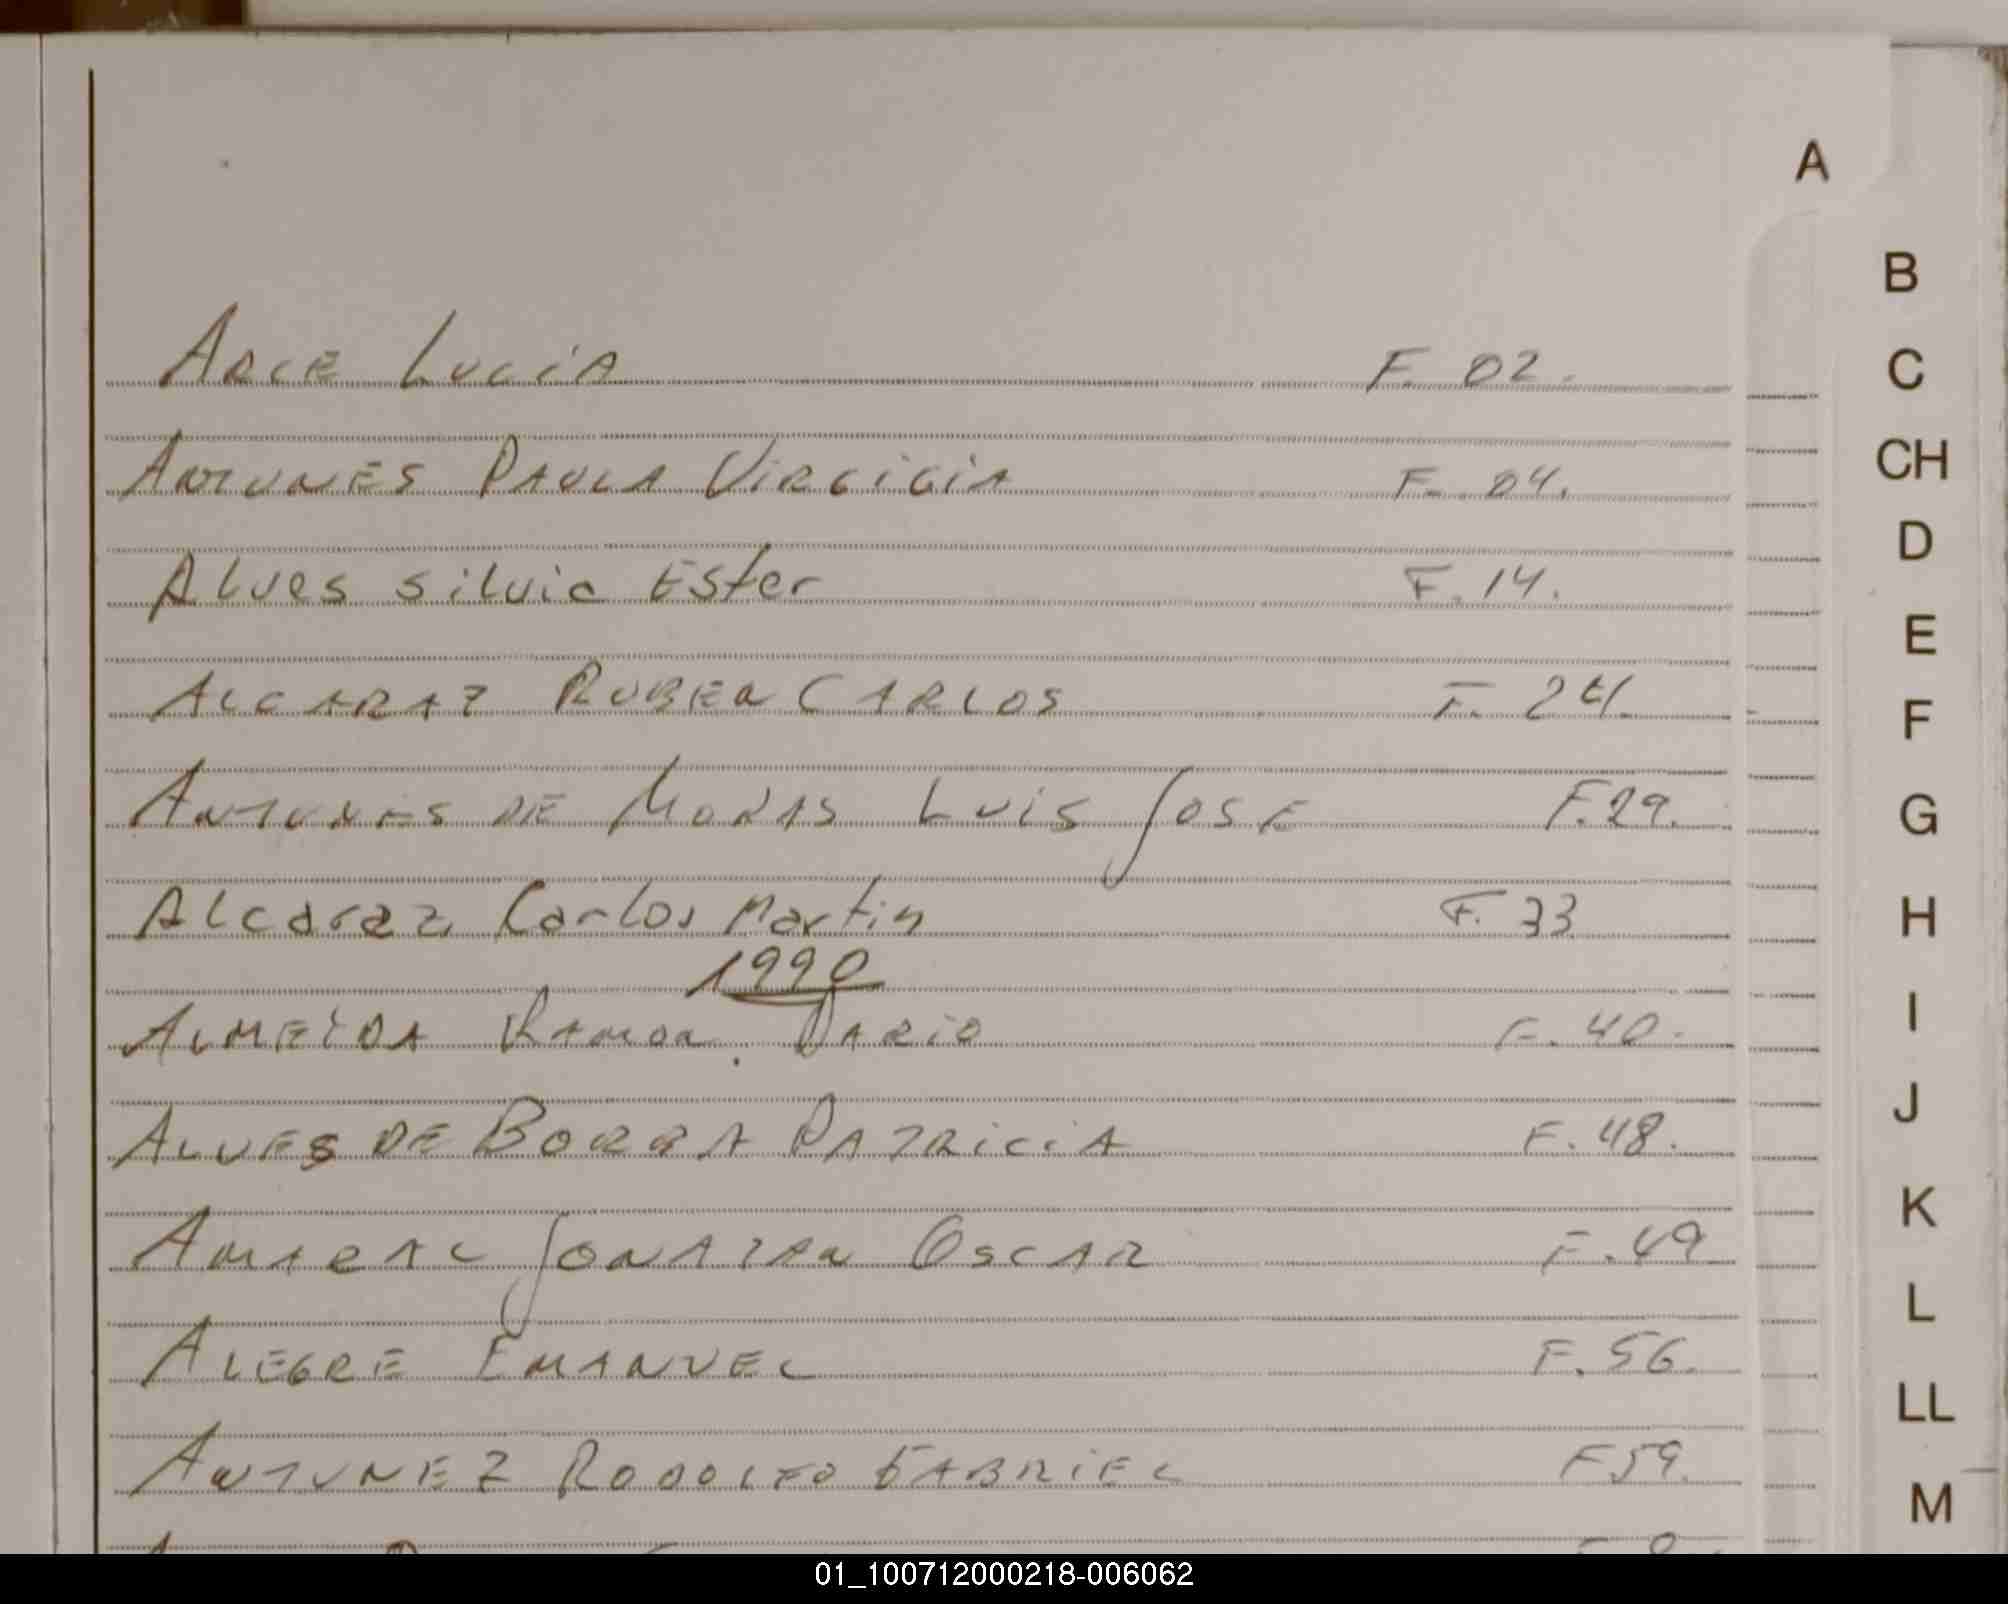 A
B
ARCE LUCIA F. 02.
C
ANTUNES PAULA VIRGIGIA F. 04.
CH
Alves Silvia Ester F. 14.
D
E
ALCARAZ RUBEN CARLOS F. 24.
F
ANTUNES DE MORAS LUIS JOSE F. 29.
G
Alcaraz Carlos Martin F. 33
H
1990
ALMEIDA RAMON DARIO F. 40.
I
ALVES DE BORBA PATRICIA F. 48.
J
AMARAL JONATAN OSCAR F. 49
K
L
ALEGRE EMANUEL F. 56.
LL
ANTUNEZ RODOLFO GABRIEL F 59.
M
01_100712000218-006062